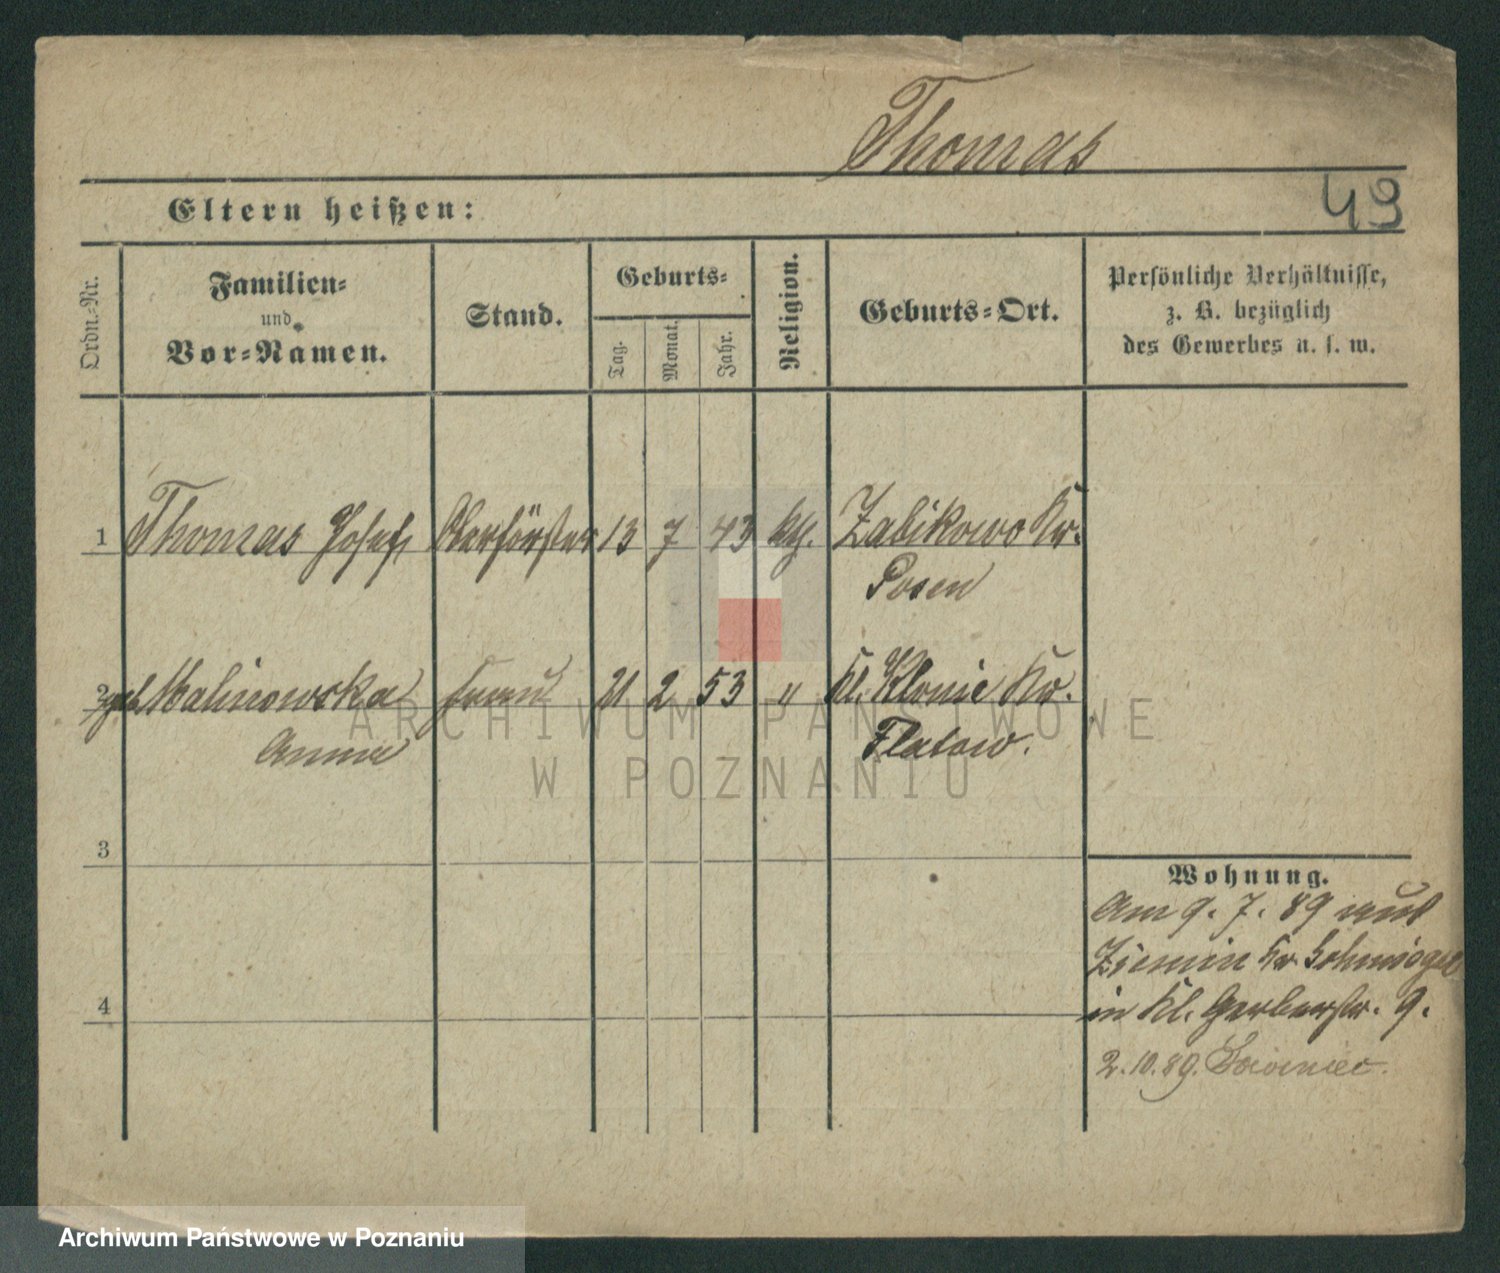 Thomas
49
Eltern heißen:
Ordn.-Nr.
Familien-
und
Vor-Namen.
Stand.
Geburts-
Tag.
Monat.
Jahr.
Religion.
Geburts-Ort.
Persönliche Verhältnisse,
z. B. bezüglich
des Gewerbes u. s. w.
1 Thomas Josef Oberförster 13 7 43 kth. Zabikowo Kr.
Posen
2 geb. Malinowska Frau 21 2 53 " Kl. Klonie Kr.
Anna Flatow.
3
4
Wohnung.
Am 9. 7. 89 aus
Ziemin Kr Schmiegel
in Kl. Gerberstr. 9.
2.10.89.
ARCHIWUM PAŃSTWOWE
W POZNANIU
Archiwum Państwowe w Poznaniu